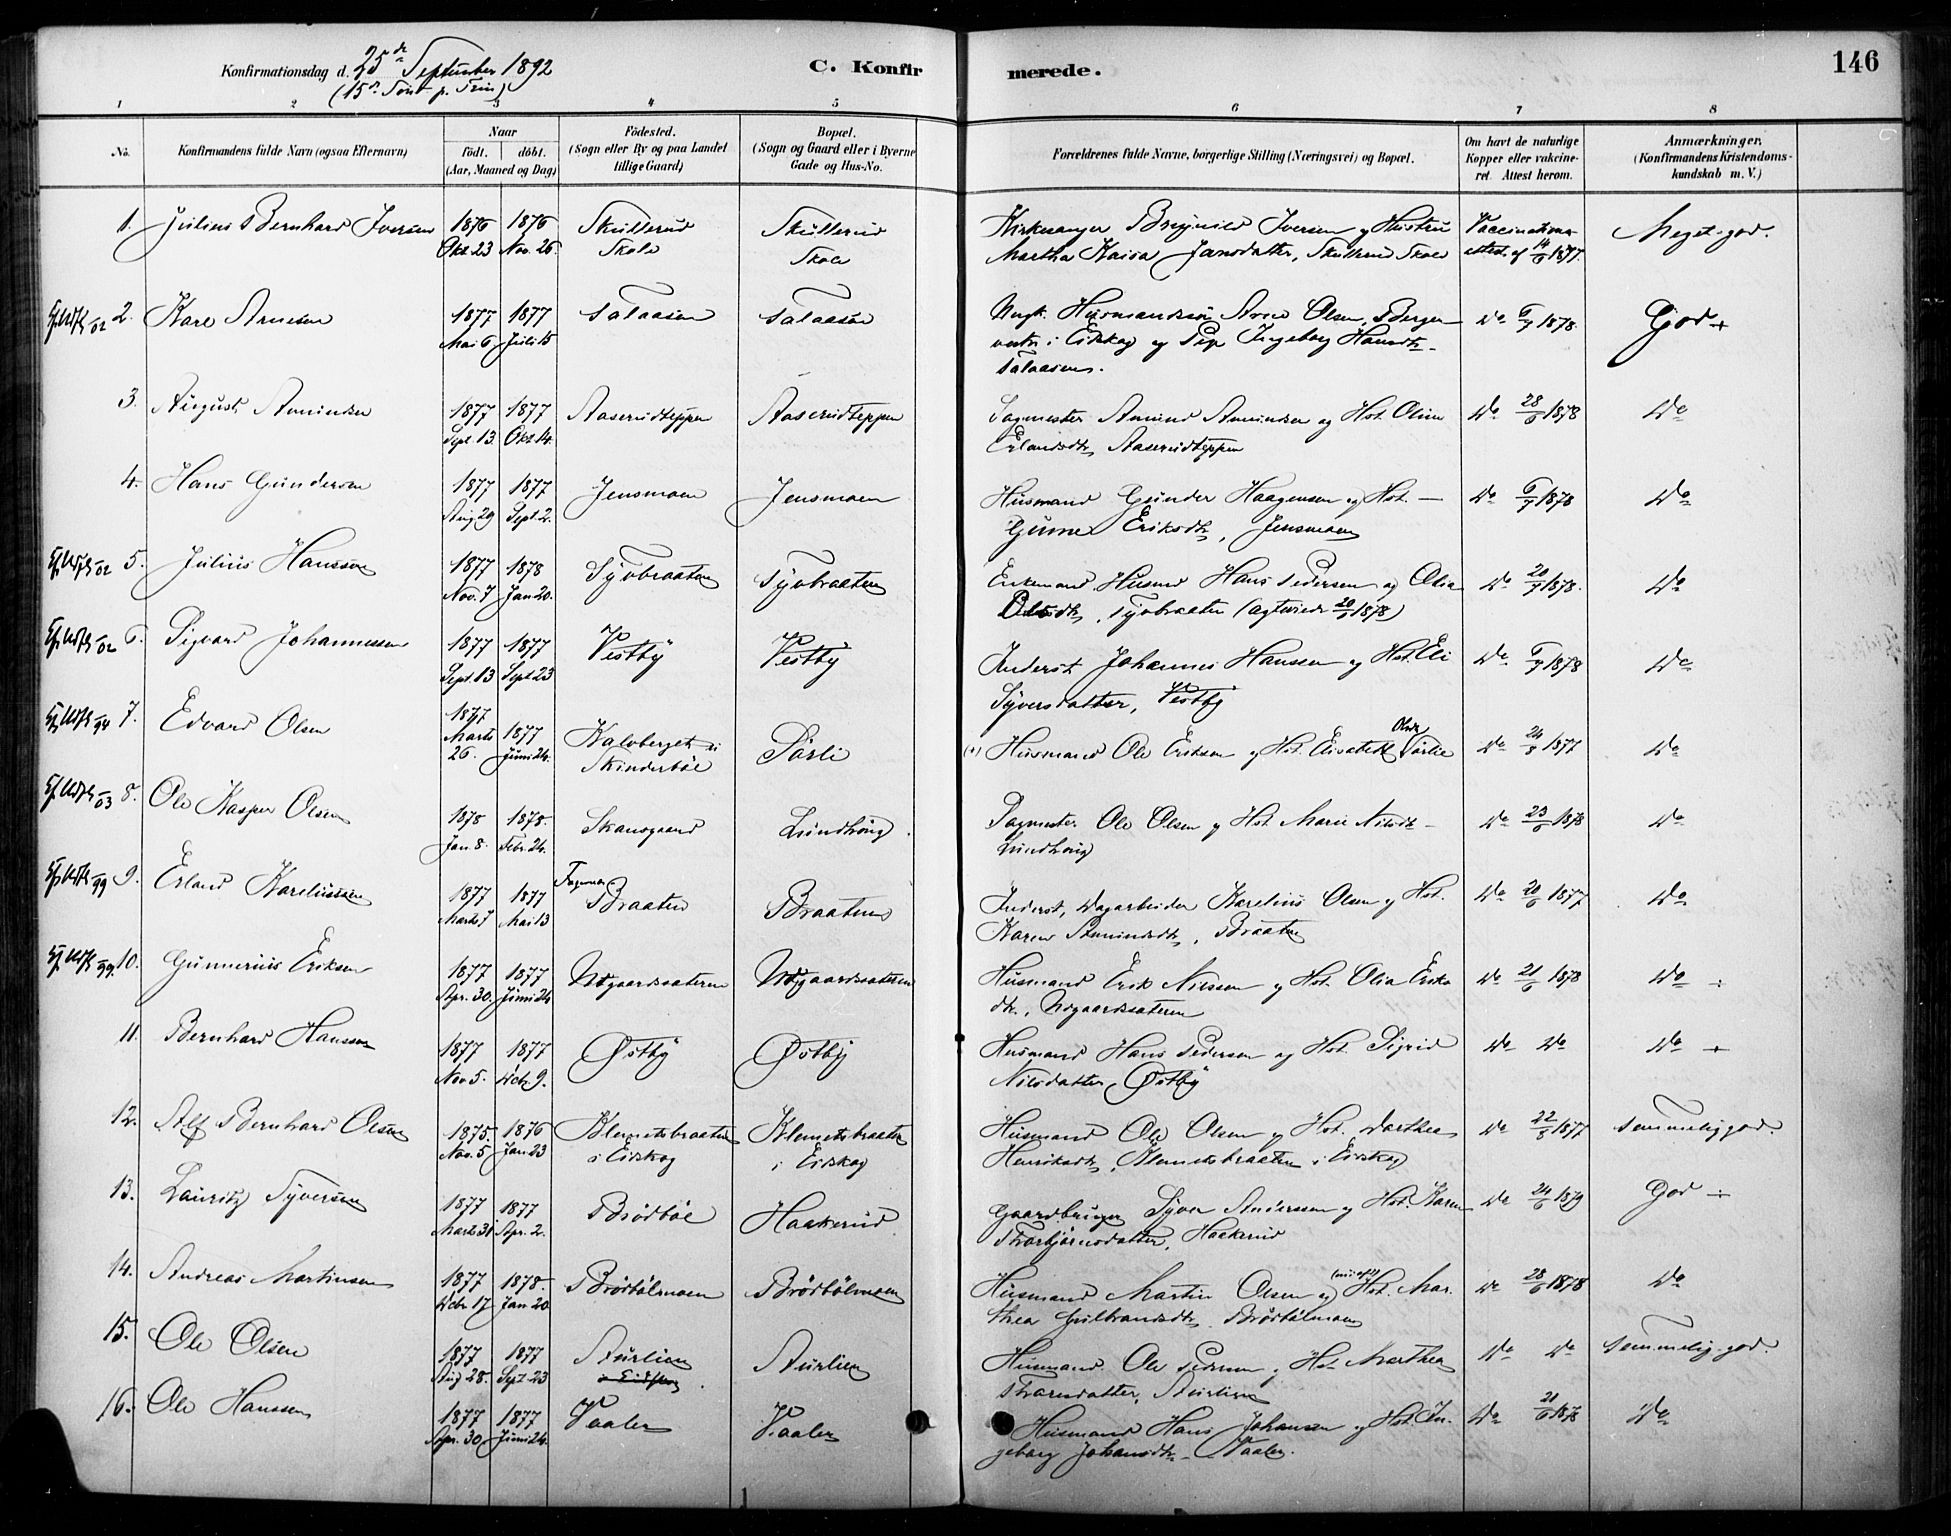 Konfirmationsdag d. 25de September 1892
(15de Sønt. p. Trin)
C. Konfirmerede.
146
1 2 3 4 5 6 7 8
No. Konfirmandens fulde Navn (ogsaa Efternavn) Naar født. døbt. (Aar, Maaned og Dag) Fødested. (Sogn eller By og paa Landet tillige Gaard) Bopæl. (Sogn og Gaard eller i Byerne Gade og Hus-No. Forældrenes fulde Navne, borgerlige Stilling (Næringsvei) og Bopæl. Om havt de naturlige Kopper eller vakcineret. Attest herom. Anmærkninger. (Konfirmandens Kristendomskundskab m. V.)
1. Julius Bernhard Iversen 1876 Okt 23 1876 Nov. 26. Skullerud Skole Skullerud Skole Kirkesanger Iversen og Hustru Vaccinations- Meget god.
Martha Kaisa Jansdatter, Skullerud Skole attest af 14/6 1877.
2. Kare Arnesen 1877 Mai 6 1877 Juli 15 Talaasen Talaasen Ungk. Husmandssøn Arne Olsen, Berger Do 6/7 1878. God +
i Eidskog og Pige Ingeborg Hansdtr
Talaasen.
3. August Amundsen 1877 Sept. 13. 1877 Okt 14. Aaserudteppen Aaserudteppen Sagmester Amund Amundsen og Hst. Oline Do 28/6 1878 Do
Erlandsdtr Aaserudteppen
4. Hans Gundersen 1877 Aug 29 1877 Sept. 2. Jensmoen Jensmoen Husmand Gunder Haagensen og Hst. Do 6/7 1878 Do
Eriksdtr, Jensmoen
5. Julius Hanssen 1877 Nov. 7 1878 Jan 20. Tyvbraaten Tyvbraaten Enkemand Husmd Hans Pedersen og Olia Do 20/7 1878. Do
Olsdtr, Tyvbraaten
6. Sigvard Johannessen 1877 Sept. 13 1877 Sept 23 Vestby Vestby Inderst Johannes Hansen og Hst. Eli Do 6/7 1878 Do
Syversdatter, Vestby
7. Edvard Olsen 1877 Marts 26. 1877 Juni 24. Kalvberget i Skinderbøl Sørli Husmand Ole Eriksen og Hst. Elisabeth Olsdtr Sørlie Do 24/8 1877 Do
8. Ole Kasper Olsen 1878 Jan. 8. 1878. Febr. 24. Skansgaard Lundhøug Sagmester Ole Olsen og Hst. Marie Nilsdtr Do 23/6 1878 Do
Lundhøug
9. Erland Kareliussen 1877 Marts 7 1877 Mai 13 Braaten Braaten Inderst, Dagarbeider Karelius Olsen og Hst. Do 20/6 1877 Do
Karen Amundsdtr, Braaten
10. Gunnerius Eriksen 1877 Apr. 30. 1877 Juni 24 Udgaardssæteren Udgaardssæteren Husmand Erik Nilssen og Hst. Olia Eriks Do 21/6 1878 Do
dtr., Udgaardssæteren
11. Bernhard Hanssen 1877 Nov 5. 1877 Dcbr 9. Østby Østby Husmand Hans Pedersen og Hst. Sigrid Do Do Do
Nilsdatter, Østby
12. Alf Bernhard Olsen 1875. Nov. 5 1876 Jan 23 Klemetsbraaten i Eidskog Klemetsbraaten i Eidskog Husmand Ole Olsen og Hst. Dorthea Do 22/8 1877 Temmelig god.
Henriksdtr, Klemetsbraaten i Eidskog
13. Lauritz Syversen 1877 Marts 31 1877 Apr. 2. Brødbøl Haakerud Gaardbruger Syver Anderssen og Hst. Karen Do 24/6 1879 God ÷
Thorbjørnsdatter, Haakerud
14. Andreas Martinsen 1877 Dcbr 17 1878. Jan 20 Brødbølmoen Brødbølmoen Husmand Martin Olsen og Hst. Mar- Do 28/6 1878 Do
thea Gulbrandsdtr Brødbølmoen
15. Ole Olsen 1877 Aug 28. 1877 Sept. 23 Sturlien Sturlien Husmand Ole Pedersen og Hst. Marthea Do Do Temmelig god.
Thoresdatter, Sturlien
16. Ole Hanssen 1877 Apr. 30 1877 Juni 24. Vaaler Vaaler Husmand Hans Johansen og Hst. In- Do 21/6 1878 Do
geborg Johansdtr Vaaler.